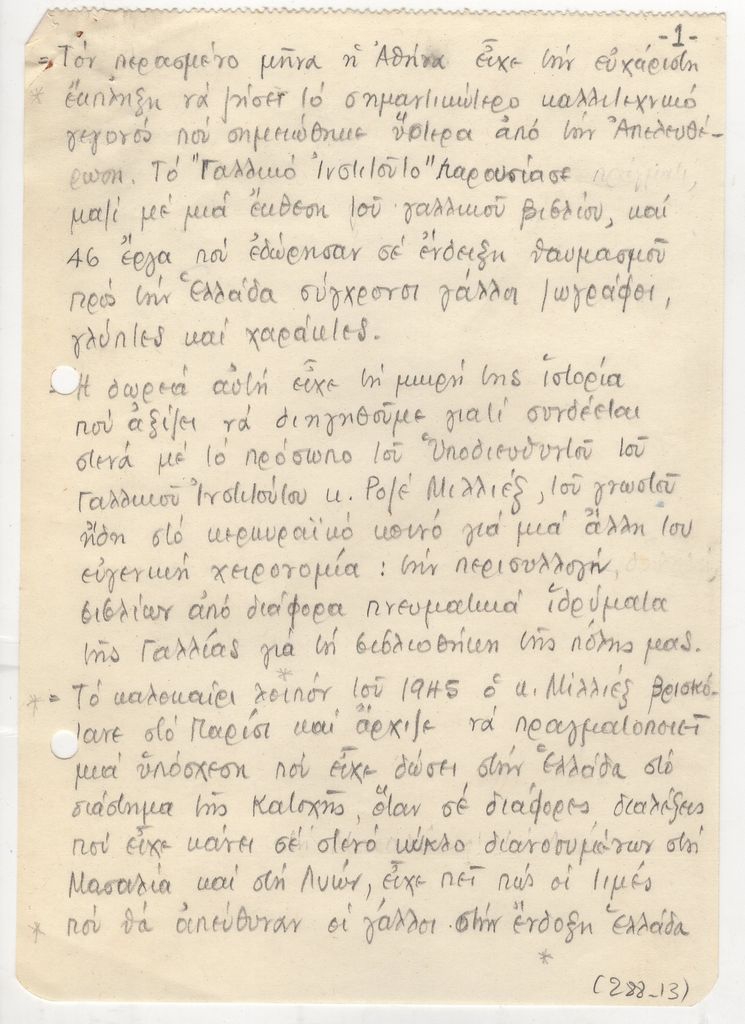 -1-
= Τόν περασμένο μῆνα ἡ Ἀθήνα εἶχε τήν εὐχάριστη
ἔκπληξη νά ζήσει τό σημαντικώτερο καλλιτεχνικό
γεγονός πού σημειώθηκε ὕστερα ἀπό τήν Ἀπελευθέ-
ρωση. Τό "Γαλλικό Ἰνστιτοῦτο" παρουσίασε
μαζί μέ μιά ἔκθεση τοῦ γαλλικοῦ βιβλίου, καί
46 ἔργα πού ἐδώρησαν σέ ἔνδειξη θαυμασμοῦ
πρός τήν Ἑλλάδα σύγχρονοι γάλλοι ζωγράφοι,
γλύπτες καί χαράκτες.
- Ἡ δωρεά αὐτή εἶχε τή μικρή της ἱστορία
πού ἀξίζει νά διηγηθοῦμε γιατί συνδέεται
στενά μέ τό πρόσωπο τοῦ Ὑποδιευθυντοῦ τοῦ
Γαλλικοῦ Ἰνστιτούτου κ. Ροζέ Μιλλιέξ, τοῦ γνωστοῦ
ἤδη στό κερκυραϊκό κοινό γιά μιά ἄλλη του
εὐγενική χειρονομία : τήν περισυλλογή,
βιβλίων ἀπό διάφορα πνευματικά ἱδρύματα
τῆς Γαλλίας γιά τή βιβλιοθήκη τῆς πόλης μας.
= Τό καλοκαίρι λοιπόν τοῦ 1945 ὁ κ. Μιλλιέξ βρισκό-
τανε στό Παρίσι καί ἄρχιζε νά πραγματοποιεῖ
μιά ὑπόσχεση πού εἶχε δώσει στήν Ἑλλάδα στό
διάστημα τῆς Κατοχῆς, ὅταν σέ διάφορες διαλέξεις
πού εἶχε κάνει σέ στενό κύκλο διανοουμένων στή
Μασσαλία καί στή Λυών, εἶχε πεῖ πώς οἱ τιμές
πού θά ἀπεύθυναν οἱ γάλλοι στήν ἔνδοξη Ἑλλάδα
(288-13)